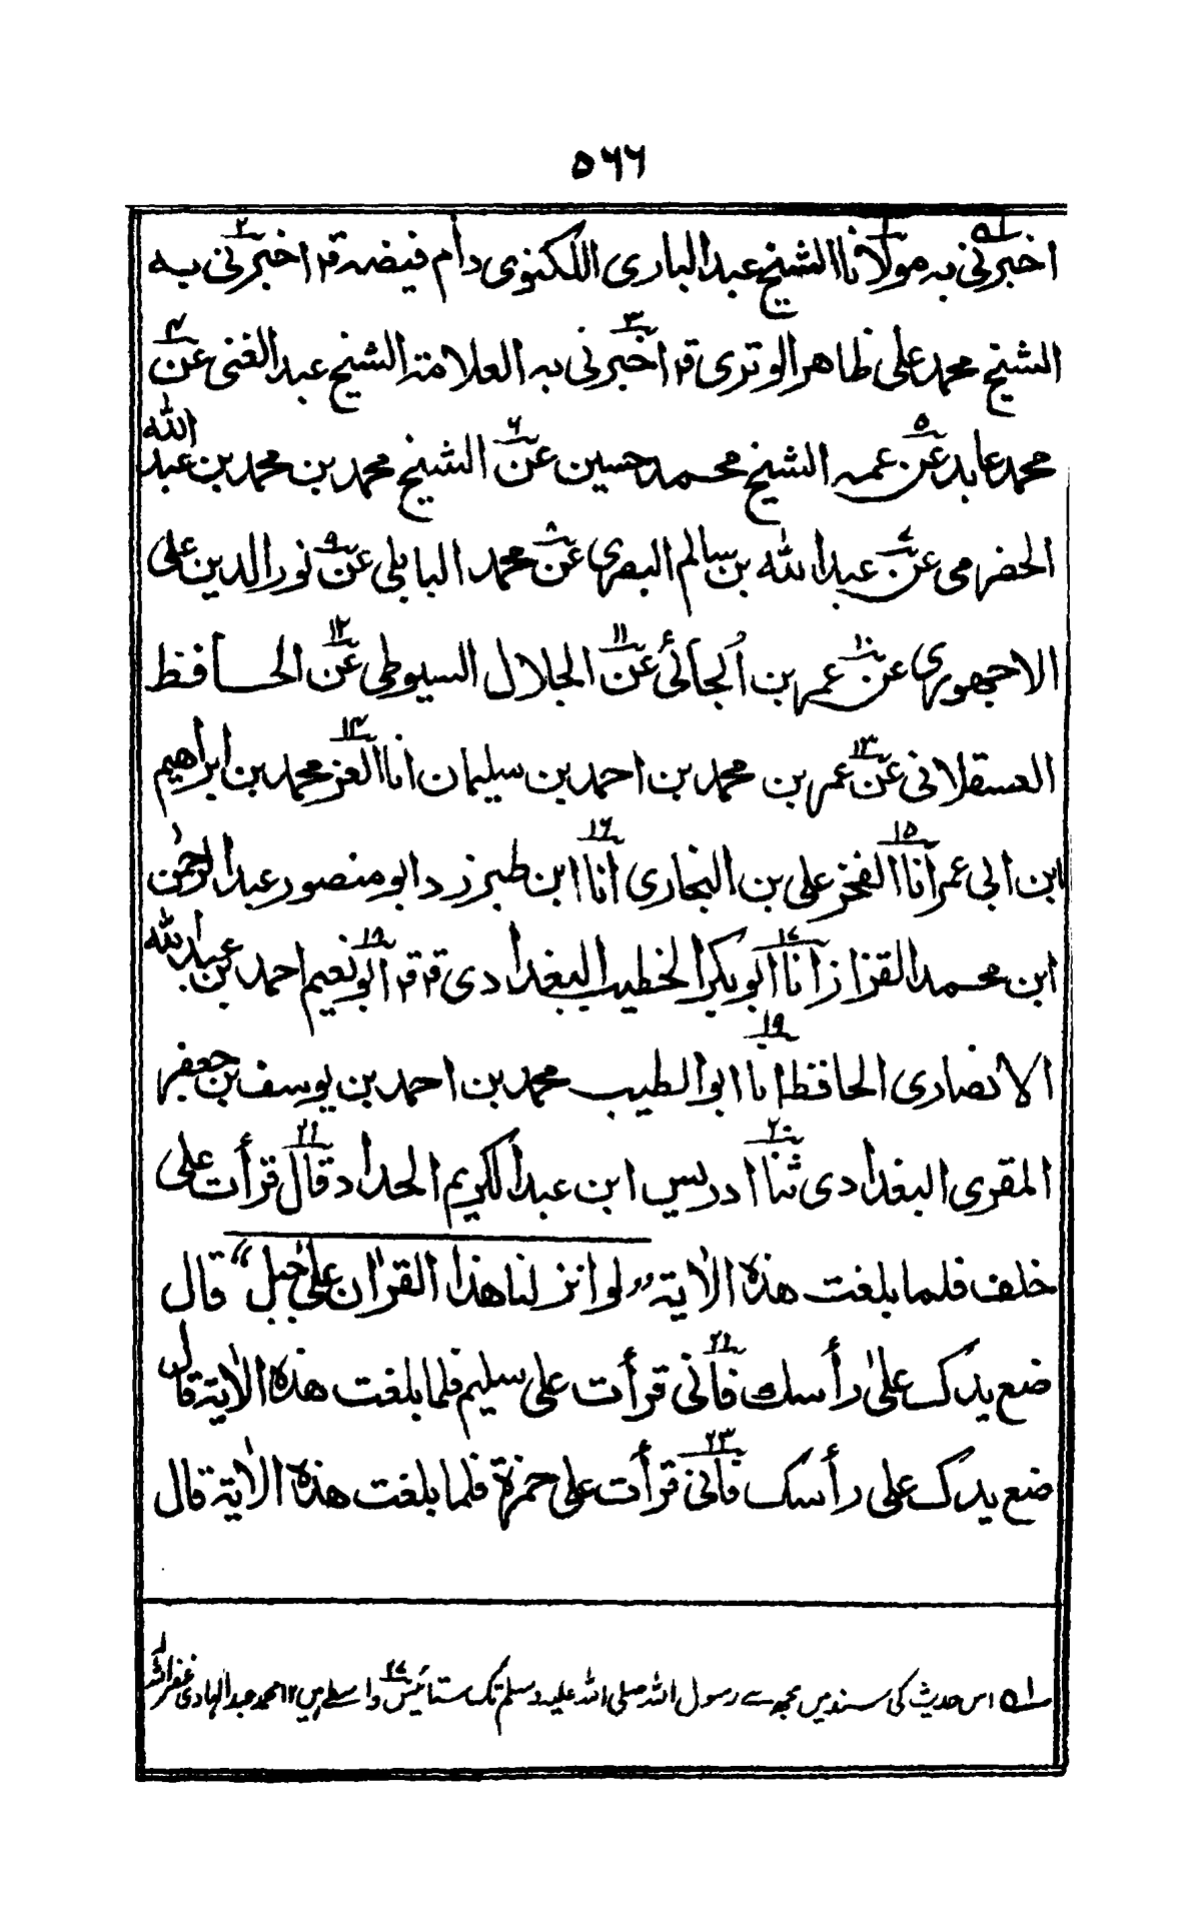 ٥٦٦
اخبرنی بہ مولانا الشیخ عبد الباری اللکنوی دام فیضہ قر اخبرنی بہ
الشیخ محمد علی ظاهر الوتری قر اخبرنی بہ العلامۃ الشیخ عبد الغنی عن
محمد عابد عن عمہ الشیخ محمد حسین عن الشیخ محمد بن محمد بن عبد الله
الحضرمی عن عبد الله بن سالم البصری عن محمد البابلی عن نور الدین علی
الاجھوری عن عمر بن الجائی عن الجلال السیوطی عن الحافظ
العسقلانی عن عمر بن محمد بن احمد بن سلیمان انا العز محمد بن ابراهیم
ابن ابی عمر انا الفخر علی بن البخاری انا ابن طبرزد و ابو منصور عبد الرحمٰن
ابن محمد القزاز انا ابو بکر الخطیب البغدادی قر قر ابو نعیم احمد بن عبد الله
الانصاری الحافظ انا ابو الطیب محمد بن احمد بن یوسف بن جعفر
المقری البغدادی ثنا ادریس ابن عبد الکریم الحداد قال قرأت علی
خلف فلما بلغت هذه الاٰیۃ "لو انزلنا هذا القراٰن علیٰ جبل" قال
ضع یدک علیٰ رأسک فانی قرأت علی سلیم فلما بلغت هذه الاٰیۃ قال
ضع یدک علی رأسک فانی قرأت علی حمزة فلما بلغت هذه الاٰیۃ قال
لے اس حدیث کی سند میں مجھ سے رسول اللہ صلی اللہ علیہ وسلم تک ستائیس واسطے ہیں ۱۲ محمد عبد الہادی غفر اللہ